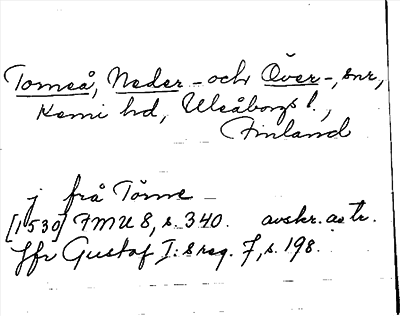 Torneå, Neder- och Över-, snr,
Kemi hd, Uleåborgs l.,
Finland
j frå Törne
[1530] FMU 8, s. 340. avskr. a str.
Jfr Gustaf I:s reg. 7, s. 198.